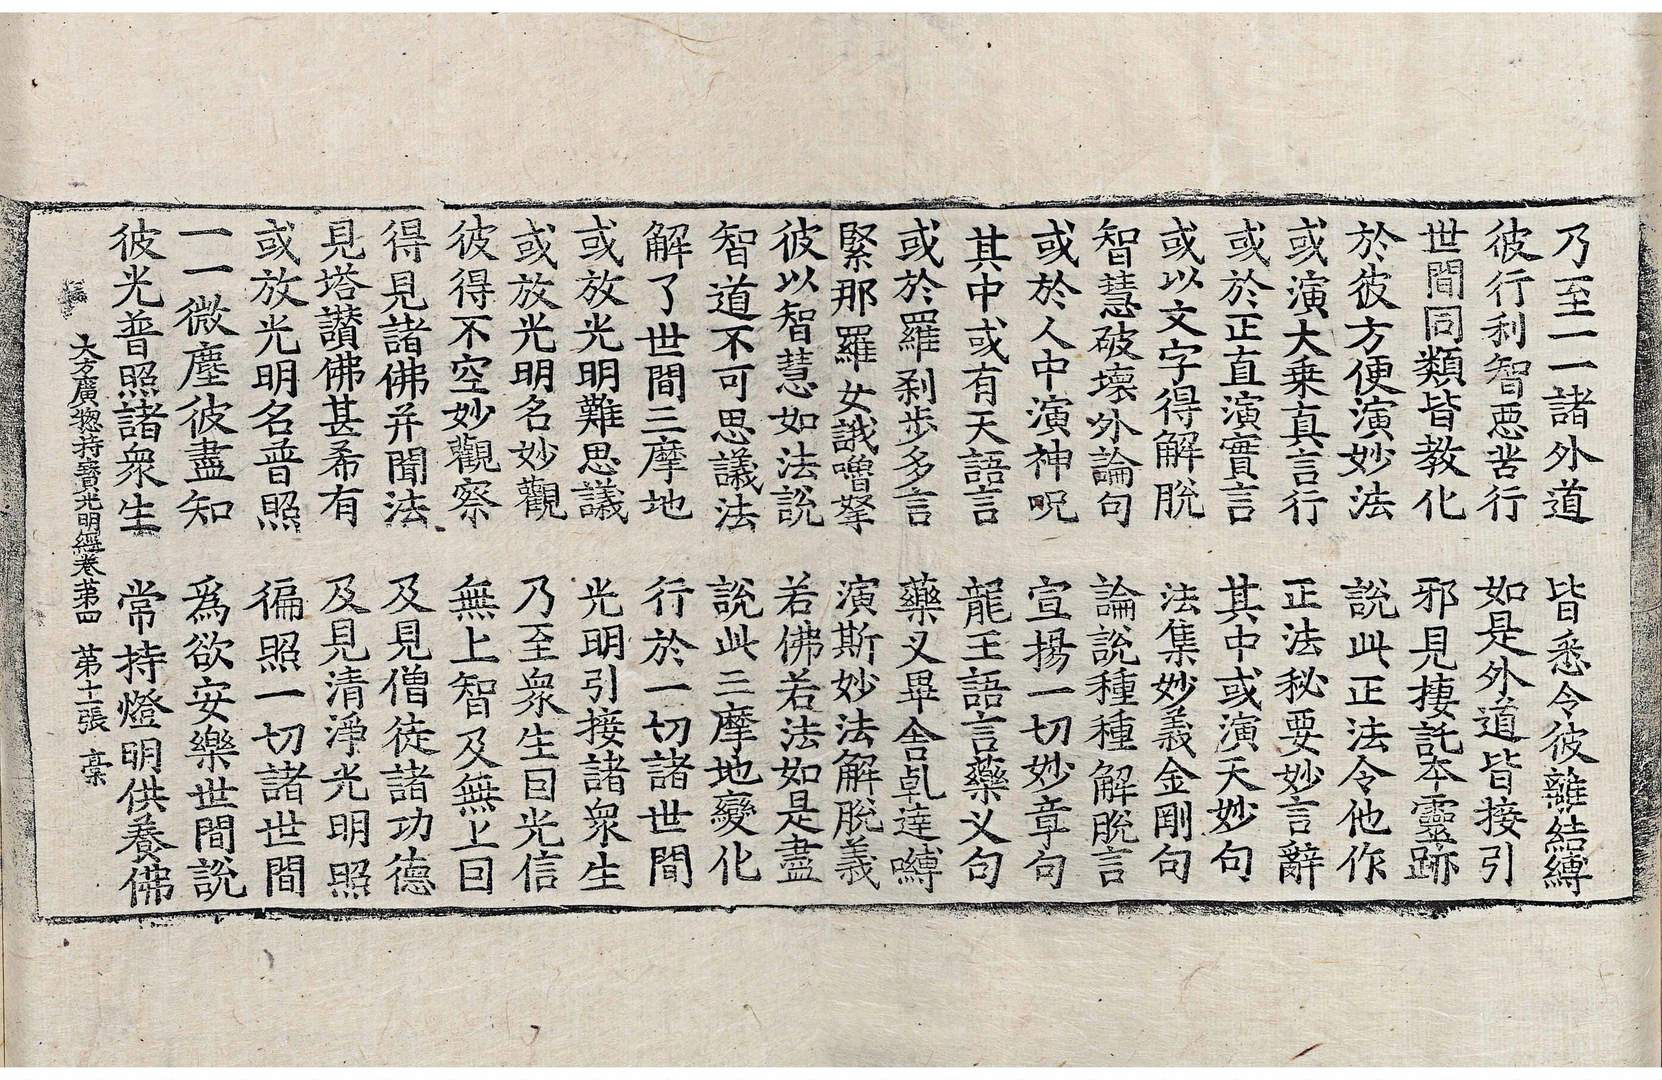 乃至一一諸外道　皆悉令彼離結縛
彼行利智惡苦行　如是外道皆接引
世間同類皆教化　邪見捿託本靈跡
於彼方便演妙法　說此正法令他作
或演大乗真言行　正法秘要妙言辭
或於正直演實言　其中或演天妙句
或以文字得解脫　法集妙義金剛句
智慧破壞外論句　論說種種解脫言
或於人中演神呪　宣揚一切妙章句
其中或有天語言　龍王語言藥叉句
或於羅剎步多言　藥叉畢舍乹達嚩
緊那羅女誐嚕拏　演斯妙法解脫義
彼以智慧如法說　若佛若法如是盡
智道不可思議法　說此三摩地變化
解了世間三摩地　行於一切諸世間
或放光明難思議　光明引接諸衆生
或放光明名妙觀　乃至衆生曰光信
彼得不空妙觀察　無上智及無上曰
得見諸佛并聞法　及見僧徒諸功德
見塔讃佛甚希有　及見清淨光明照
或放光明名普照　徧照一切諸世間
一一微塵彼盡知　爲欲安樂世間說
彼光普照諸衆生　常持燈明供養佛
大方廣揔持寶光明經卷第四　第十一張　槀